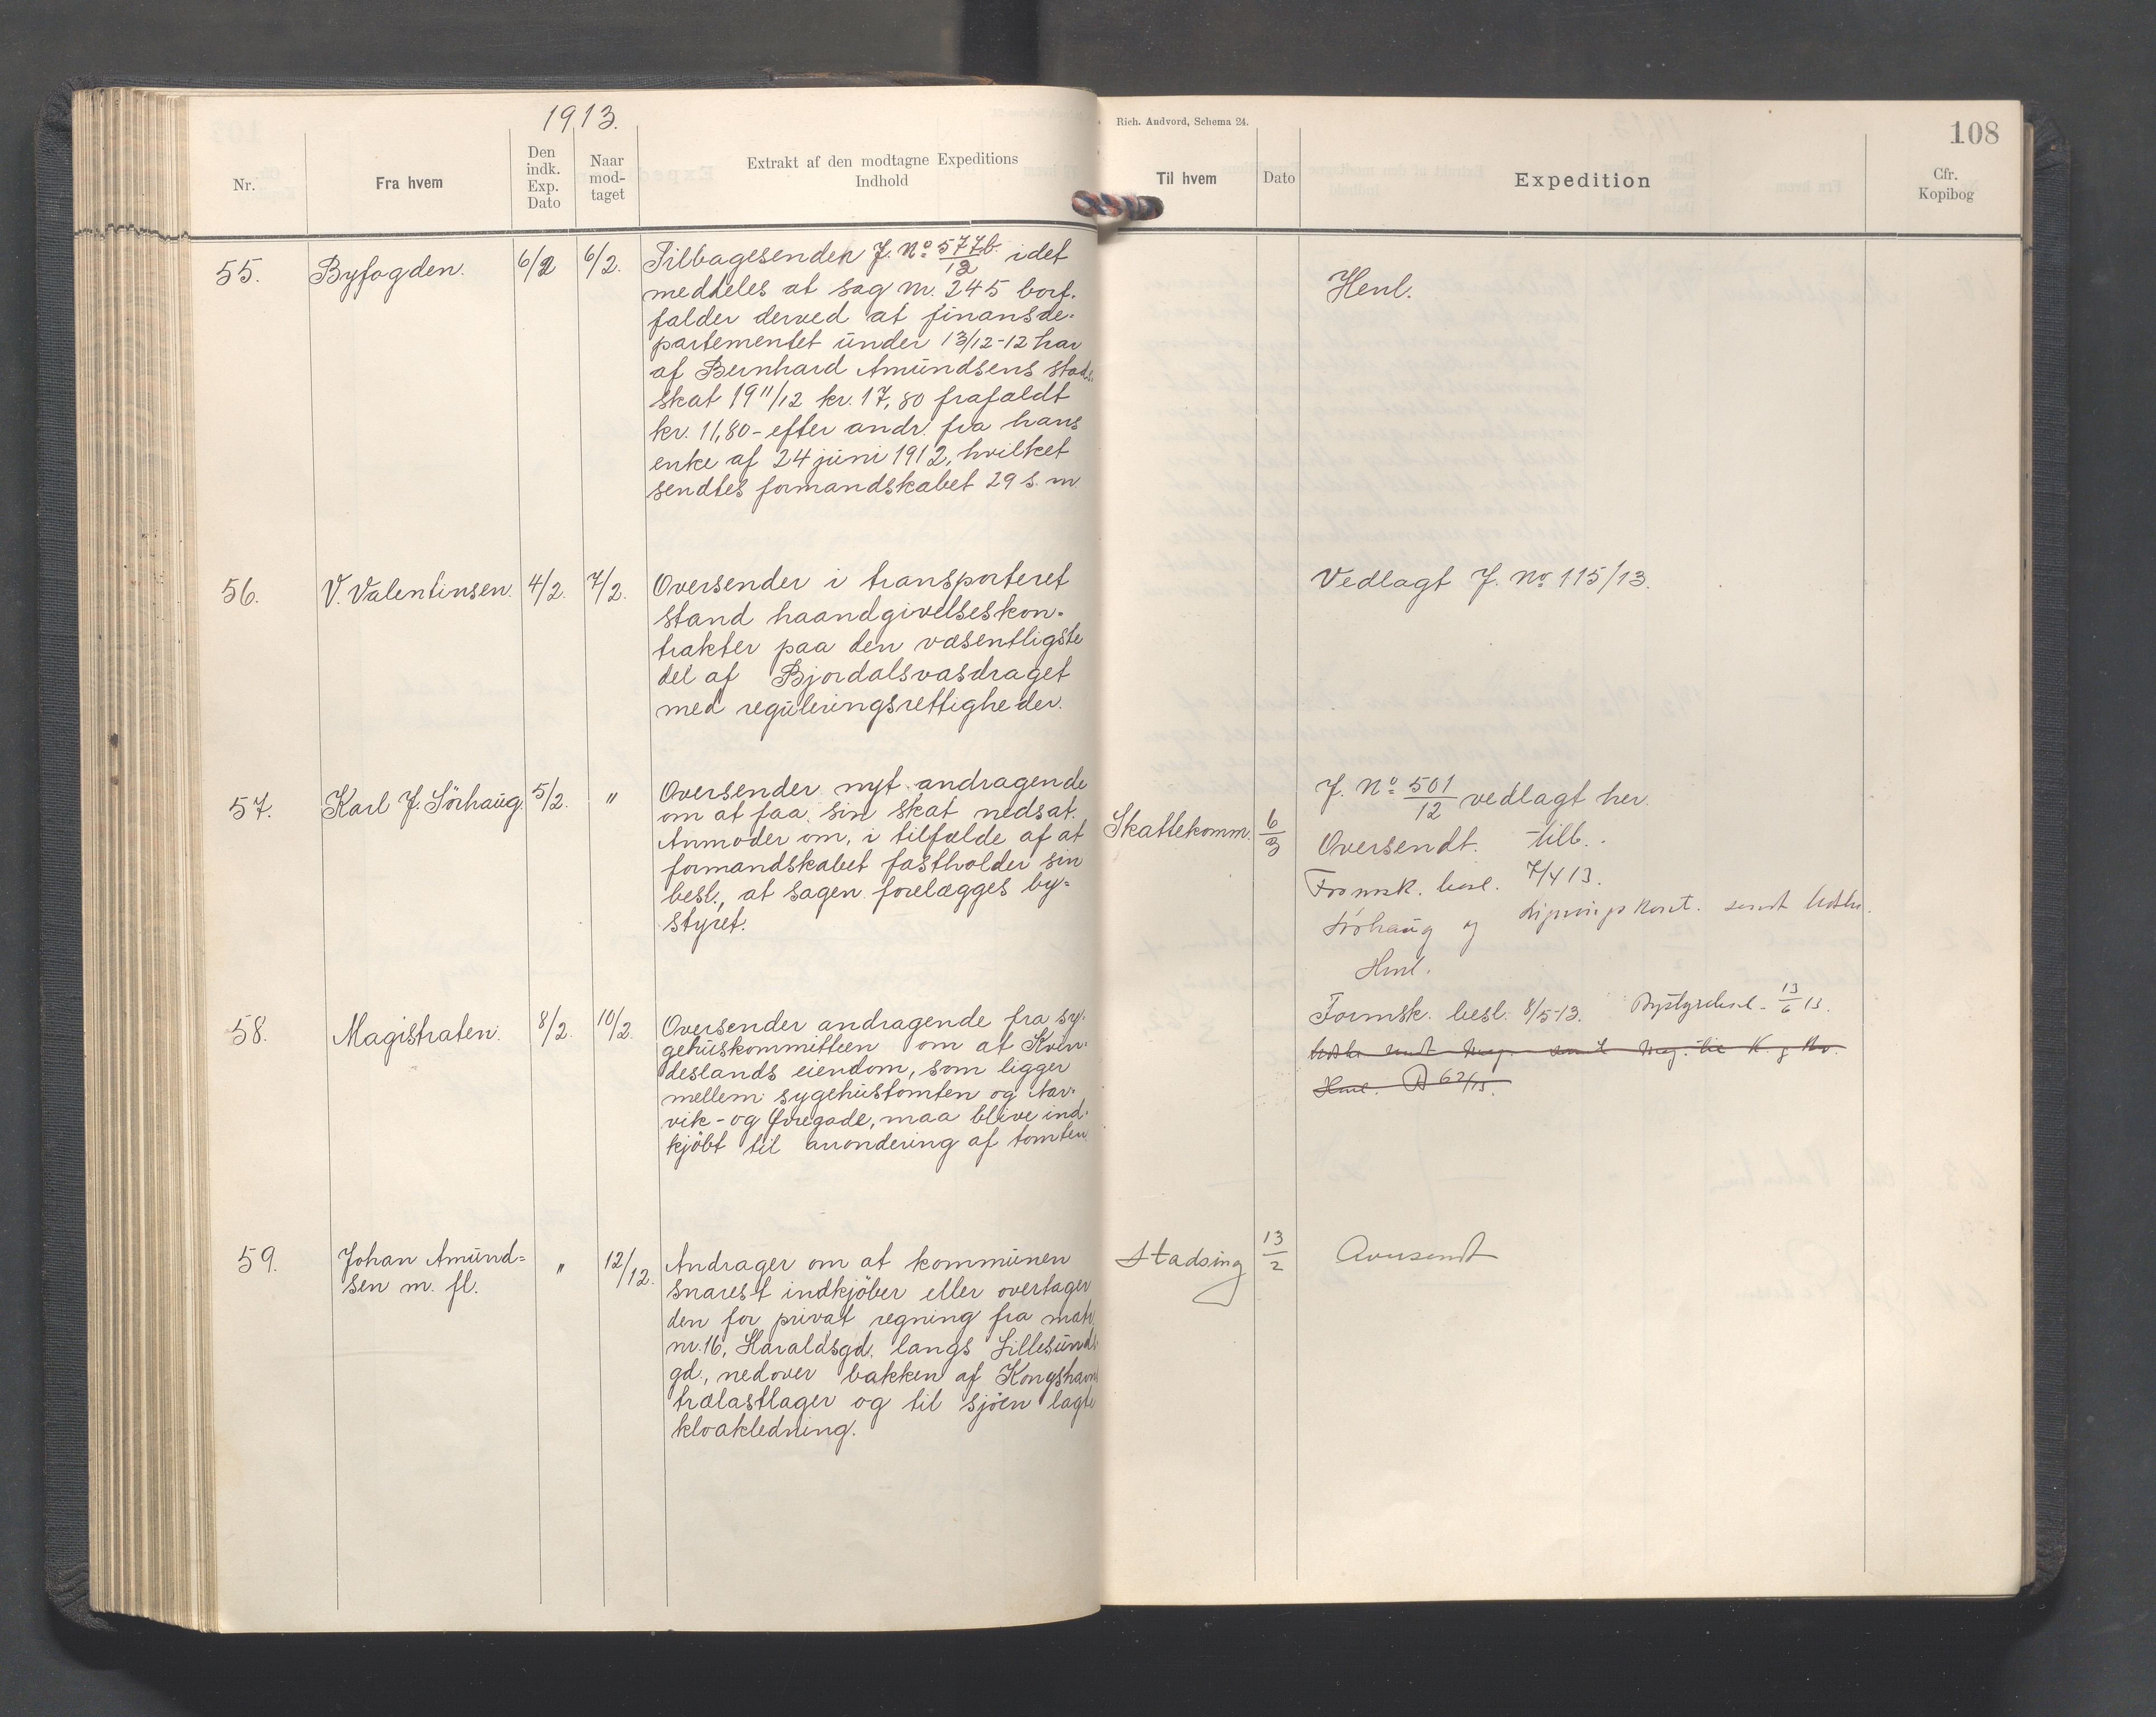 1913.
Rich. Andvord, Schema 24.
108
Nr.
Fra hvem
Den indk. Exp. Dato
Naar mod-taget
Extrakt af den modtagne Expeditions Indhold
Til hvem
Dato
Expedition
Cfr. Kopibog
55. Byfogden. 6/2 6/2.
Tilbagesender J. No 577b/12 idet
meddeles at sag nr. 245 bort-
falder derved at finansde-
partementet under 13/12-12 har
af Bernhard Amundsens stads-
skat 1911/12 kr. 17,80 frafaldt
kr. 11,80 - efter andr. fra hans
enke af 24 juni 1912, hvilket
sendtes formandskabet 29 s. m.
Henl.
56. V. Valentinsen. 4/2. 7/2.
Oversender i transporteret
stand haandgivelseskon-
trakter paa den væsentligste
del af Bjordalsvasdraget
med reguleringsrettigheder.
Vedlagt J. No 115/13.
57. Karl J. Sörhaug. 5/2. "
Oversender nyt andragende
om at faa sin skat nedsat.
Anmoder om, i tilfælde af at
formandskabet fastholder sin
besl., at sagen forelægges by=
styret.
Skattekomm. 6/3
J. No 501/12 vedlagt her.
Oversendt. tilb.
Formsk. besl. 7/4 13.
Sörhaug og Ligningskont. sendt
Henl.
58. Magistraten. 8/2. 10/2.
Oversender andragende fra sy-
gehuskommitteen om at Kven-
deslands eiendom, som ligger
mellem sygehustomten og Nar-
vik- og Øvregade, maa blive ind-
kjöbt til arrondering af tomten.
Formsk. besl. 8/5-13. Bystyrebesl. 13/6 13.
Henl.
59. Johan Amund=
sen m. fl.
" 12/12.
Andrager om at kommunen
snarest indkjöber eller overtager
den for privat regning fra matr.
nr. 16, Haraldsgd. langs Lillesunds-
gd., nedover bakken af Kongshavns
trælastlager og til sjöen lagte
kloakledning.
Stadsing 13/2
Oversendt